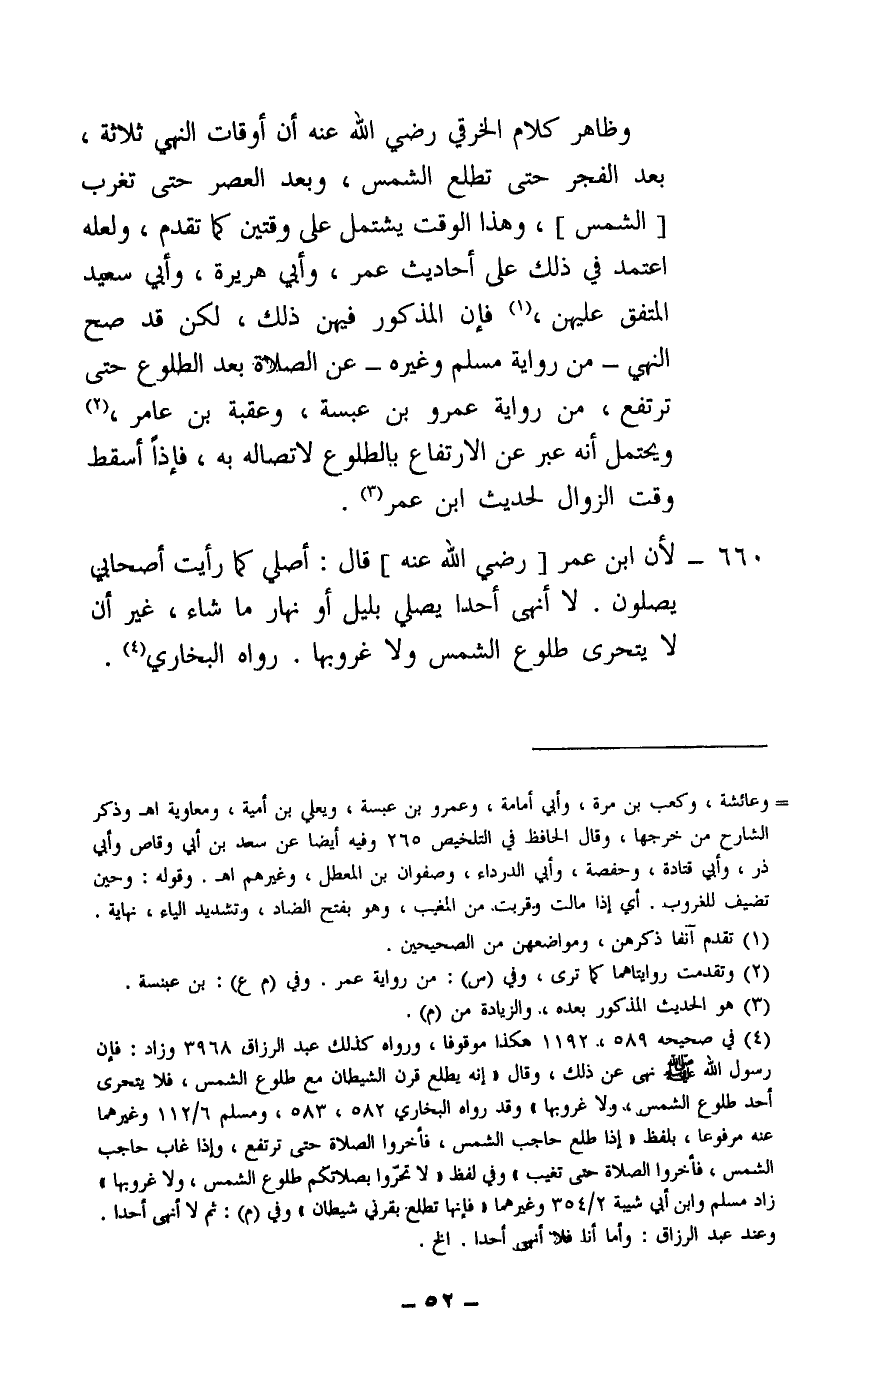 وظاهر كلام الخرقي رضي الله عنه أن أوقات النهي ثلاثة ،
بعد الفجر حتى تطلع الشمس ، وبعد العصر حتى تغرب
[ الشمس ] ، وهذا الوقت يشتمل على وقتين كما تقدم ، ولعله
اعتمد في ذلك على أحاديث عمر ، وأبي هريرة ، وأبي سعيد
المتفق عليهن ،(١) فإن المذكور فيهن ذلك ، لكن قد صح
النهي – من رواية مسلم وغيره – عن الصلاة بعد الطلوع حتى
ترتفع ، من رواية عمرو بن عبسة ، وعقبة بن عامر ،(٢)
ويحتمل أنه عبر عن الارتفاع بالطلوع لاتصاله به ، فإذاً أسقط
وقت الزوال لحديث ابن عمر(٣) .
٦٦٠ – لأن ابن عمر [ رضي الله عنه ] قال : أصلي كما رأيت أصحابي
يصلون . لا أنهى أحدا يصلي بليل أو نهار ما شاء ، غير أن
لا يتحرى طلوع الشمس ولا غروبها . رواه البخاري(٤) .
= وعائشة ، وكعب بن مرة ، وأبي أمامة ، وعمرو بن عبسة ، ويعلي بن أمية ، ومعاوية اهـ وذكر
الشارح من خرجها ، وقال الحافظ في التلخيص ٢٦٥ وفيه أيضا عن سعد بن أبي وقاص وأبي
ذر ، وأبي قتادة ، وحفصة ، وأبي الدرداء ، وصفوان بن المعطل ، وغيرهم اهـ . وقوله : وحين
تضيف للغروب . أي إذا مالت وقربت من المغيب ، وهو بفتح الضاد ، وتشديد الياء ، نهاية .
(١) تقدم آنفا ذكرهن ، ومواضعهن من الصحيحين .
(٢) وتقدمت روايتاهما كما ترى ، وفي (س) : من رواية عمر . وفي (م ع) : بن عبنسة .
(٣) هو الحديث المذكور بعده ، والزيادة من (م) .
(٤) في صحيحه ٥٨٩ ، ١١٩٢ هكذا موقوفا ، ورواه كذلك عبد الرزاق ٣٩٦٨ وزاد : فإن
رسول الله ﷺ نهى عن ذلك ، وقال « إنه يطلع قرن الشيطان مع طلوع الشمس ، فلا يتحرى
أحد طلوع الشمس ، ولا غروبها » وقد رواه البخاري ٥٨٢ ، ٥٨٣ ، ومسلم ١١٢/٦ وغيرهما
عنه مرفوعا ، بلفظ « إذا طلع حاجب الشمس ، فأخروا الصلاة حتى ترتفع ، وإذا غاب حاجب
الشمس ، فأخروا الصلاة حتى تغيب » وفي لفظ « لا تحرّوا بصلاتكم طلوع الشمس ، ولا غروبها »
زاد مسلم وابن أبي شيبة ٣٥٤/٢ وغيرهما « فإنها تطلع بقرني شيطان » وفي (م) : ثم لا أنهى أحدا .
وعند عبد الرزاق : وأما أنا فلا أنهى أحدا . الخ .
– ٥٢ –